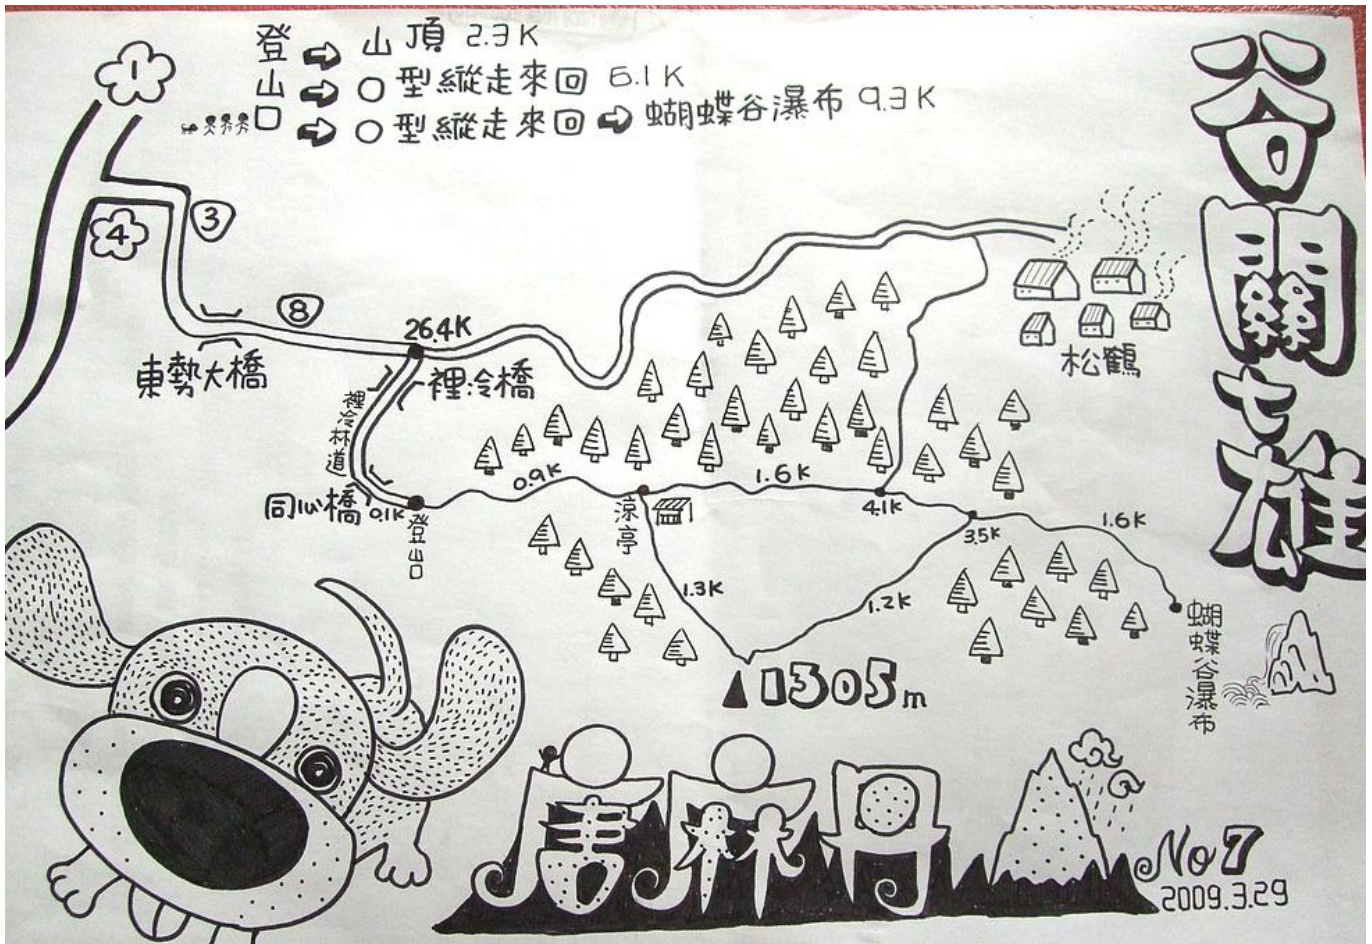 登山口 ➡ 山頂 2.3K
➡ O型縱走來回 6.1K
➡ O型縱走來回 ➡ 蝴蝶谷瀑布 9.3K
谷關七雄
1
4
3
8
東勢大橋
26.4K
裡冷橋
裡冷林道
同心橋
0.1K
登山口
0.9K
涼亭
1.6K
4.1K
3.5K
1.6K
1.3K
1.2K
松鶴
蝴蝶谷瀑布
1305m
唐麻丹
No 7
2009.3.29